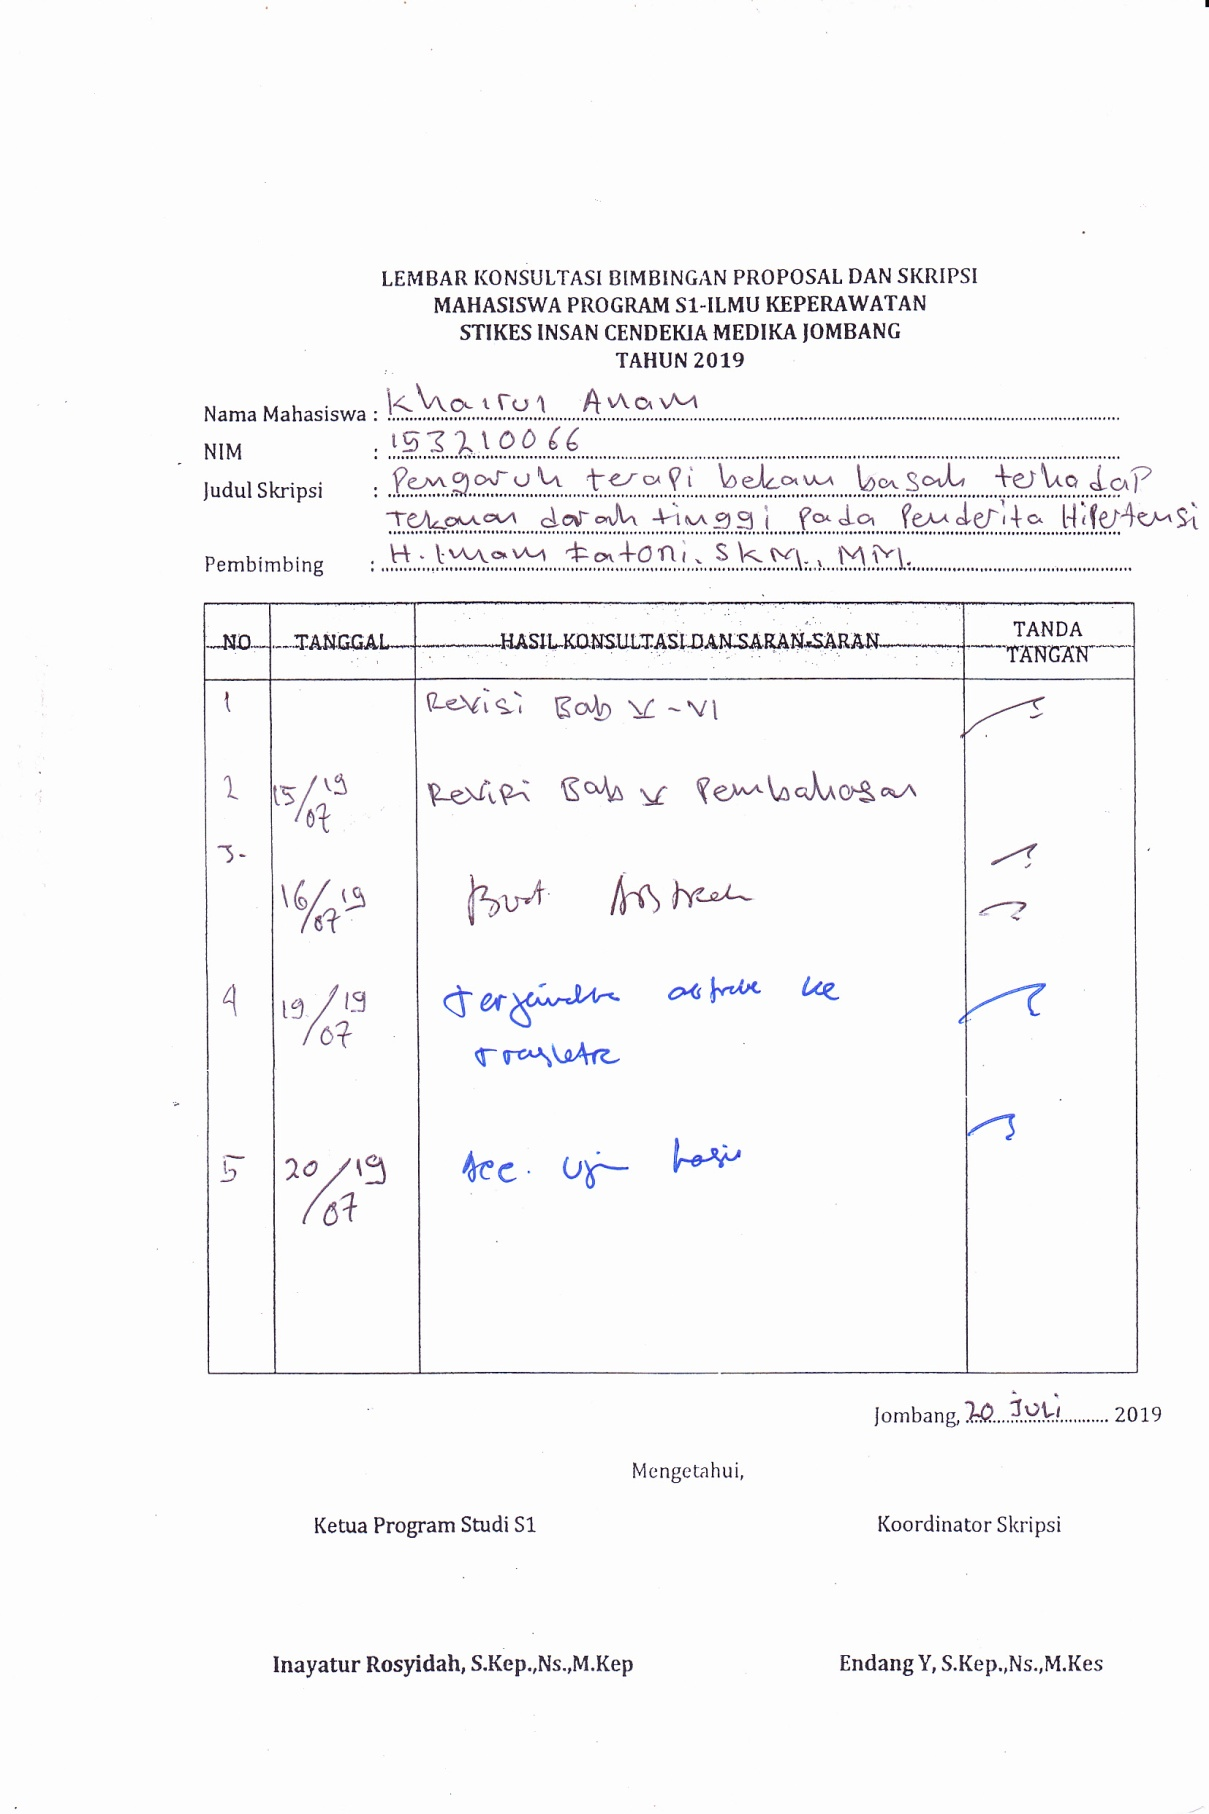 LEMBAR KONSULTASI BIMBINGAN PROPOSAL DAN SKRIPSI
MAHASISWA PROGRAM S1-ILMU KEPERAWATAN
STIKES INSAN CENDEKIA MEDIKA JOMBANG
TAHUN 2019
Nama Mahasiswa : Khairul Anam
NIM : 153210066
Judul Skripsi : Pengaruh terapi bekam basah terhadap
Tekanan darah tinggi pada Penderita Hipertensi
Pembimbing : H. Imam Fatoni, SKM., MM.
NO TANGGAL HASIL KONSULTASI DAN SARAN-SARAN TANDA TANGAN
1 Revisi Bab V - VI
2 15/07 19 Revisi Bab V Pembahasan
3.
16/07 19 Buat Abstrak
4 19/07 19 terjemahan abstrak ke
5 20/07 19 Acc. Uji hasil
Jombang, 20 Juli 2019
Mengetahui,
Ketua Program Studi S1 Koordinator Skripsi
Inayatur Rosyidah, S.Kep.,Ns.,M.Kep Endang Y, S.Kep.,Ns.,M.Kes